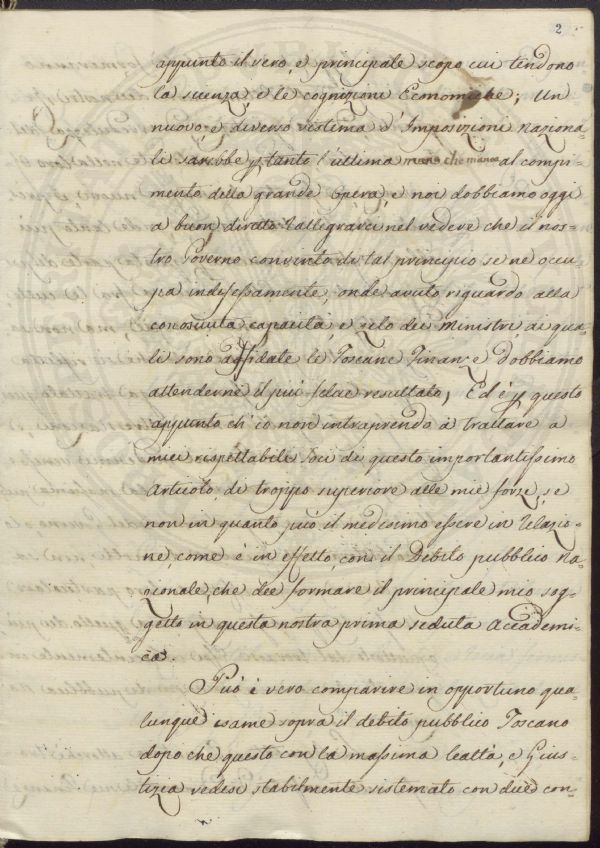 2
appunto il vero, e principale scopo cui tendono
la scienza, e le cognizioni Economiche; Un
nuovo, e diverso sestema d'Imposizioni naziona-
li sarebbe p tanto l'ultima mano che manca al compi-
mento della grande Opera, e noi dobbiamo oggi
a buon diritto rallegrarci nel vedere che il nos-
tro Governo convinto di tal principio se ne occu-
pa indefessamente, onde avuto riguardo alla
conosciuta capacità, e zelo dei Ministri, ai qua-
li sono affidate le Toscane Finanze dobbiamo
attenderne il più felice resultato; Ed è p questo
appunto ch'io non intraprendo a trattare a
miei rispettabili Soci di questo importantissimo
Articolo di troppo superiore alle mie forze, se
non in quanto può il medesimo essere in relazio-
ne, come è in effetto, con il Debito pubblico na-
zionale, che dee formare il principale mio sog-
getto in questa nostra prima seduta Accademi-
ca.
Può è vero comparire in opportuno qua-
lunque esame sopra il debito pubblico Toscano
dopo che questo con la massima lealtà, e Gius-
tizia vedesi stabilmente sistemato con due con-